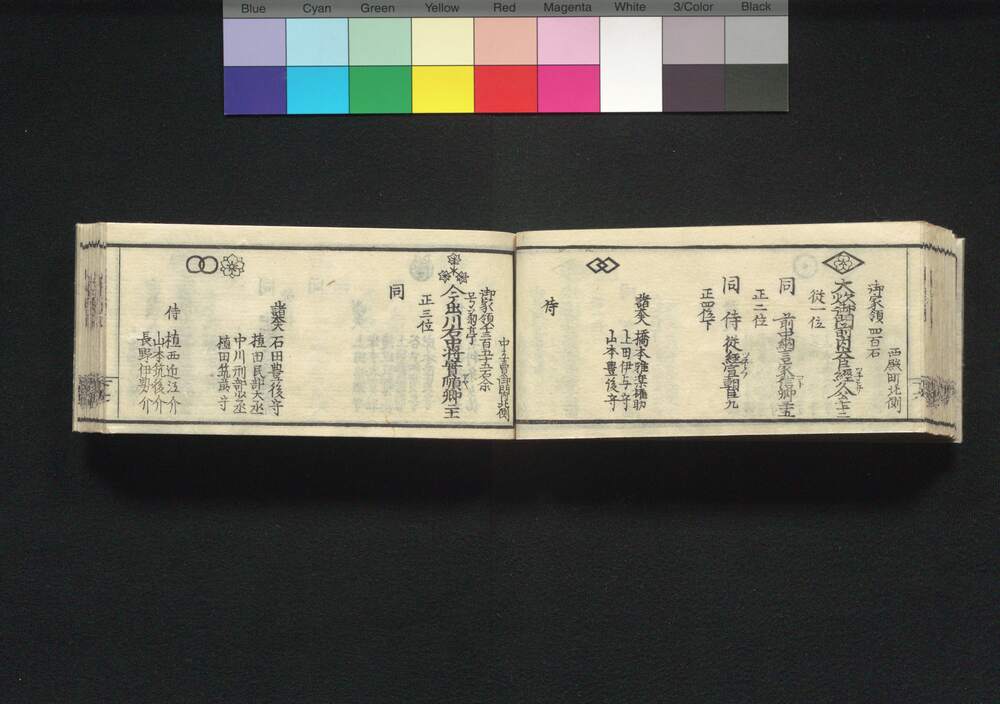 Blue Cyan Green Yellow Red Magenta White 3/Color Black
西殿町北側
御家領 四百石
大炊御門前内大臣経久公 七十二
従一位
同 前中納言家信卿 三十五
正二位
同 侍従経宣朝臣 九
正四位下
諸大夫 橋本雅楽助
上田伊与守
山本豊後守
侍
御家領千三百五十五石余
今出川右中将実順卿 二十一
正三位
同
諸大夫 石田豊後守
植田民部大丞
中川刑部少丞
植田筑前守
侍 植西近江介
山本筑後介
長野伊勢介